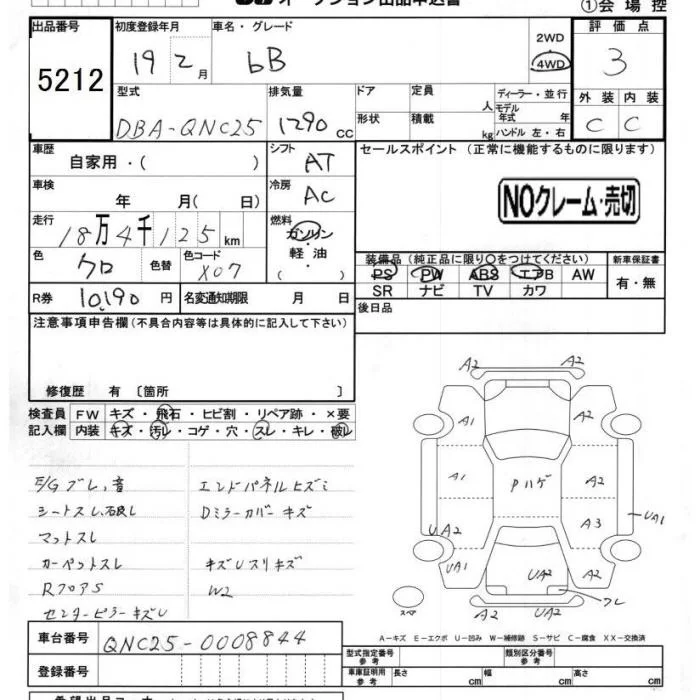 オークション出品申込書
①会場控
出品番号 初度登録年月 車名・グレード 2WD 評価点
5212 19 2月 bB 4WD 3
型式 排気量 ドア 定員 ディーラー・並行 外装 内装
DBA-QNC25 1290cc 人 モデル年式 年 C C
形状 積載 kg ハンドル 左・右
車歴 シフト セールスポイント (正常に機能するものに限ります)
自家用・( ) AT
車検 冷房
年 月( 日) AC NOクレーム・売切
走行 燃料
18万4千125km ガソリン
色 色替 色コード 軽油 装備品 (純正品に限り○をつけてください) 新車保証書
クロ X07 ・( ) PS PW ABS エアB AW 有・無
R券 10,190円 名変通知期限 月 日 SR ナビ TV カワ
注意事項申告欄(不具合内容等は具体的に記入して下さい) 後日品
修復歴 有 〔箇所 〕
検査員 FW キズ・飛石・ヒビ割・リペア跡・×要
記入欄 内装 キズ・汚レ・コゲ・穴・スレ・キレ・破レ
E/Gブレ、音 エンドパネルヒズミ
シートスレ、汚レ Dミラーカバーキズ
マットスレ
カーペットスレ キズUスリキズ
RフロアS W2
センターピラーキズU
A2 A2
A1 A2
A1 Pハゲ A2
UA2 A3 UA1
UA1 UA2 A2
スペア A2 UA2 ワレ
A-キズ E-エクボ U-凹み W-補修跡 S-サビ C-腐食 XX-交換済
車台番号 QNC25-0008844
型式指定番号 参考 類別区分番号 参考
登録番号 車庫証明用 参考 長さ cm 幅 cm 高さ cm
希望出品コーナー